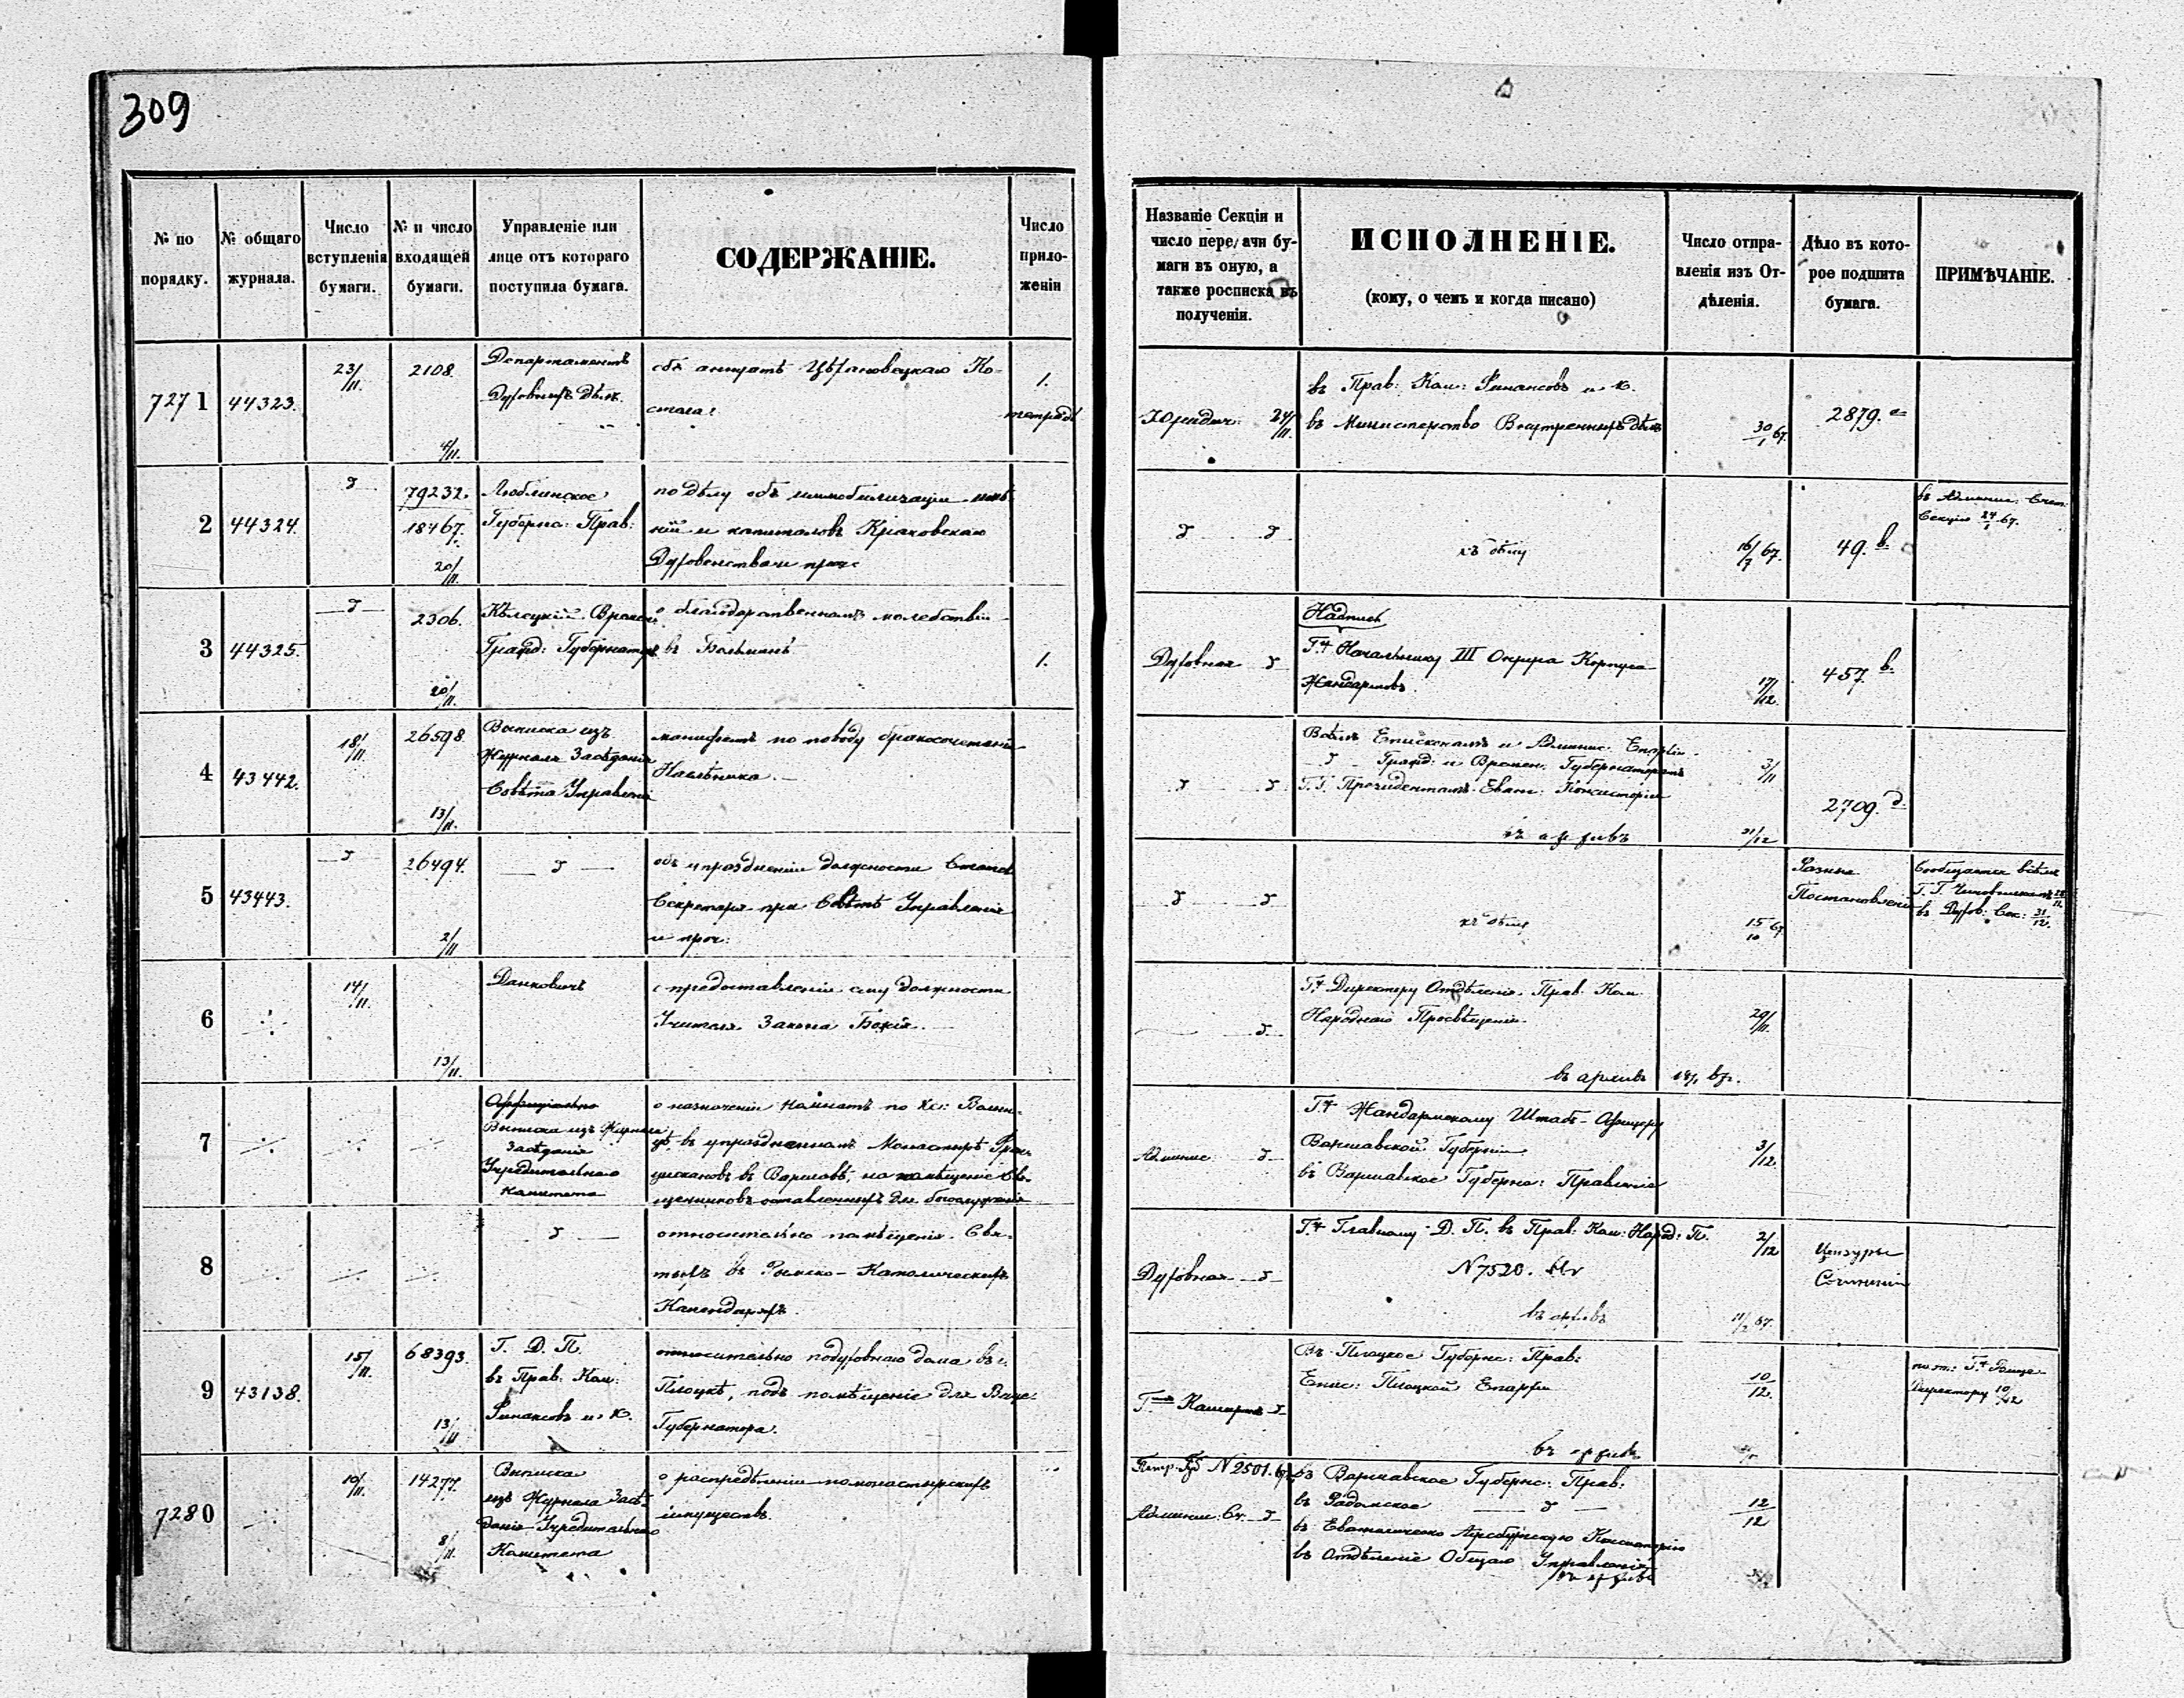 309
№ по порядку.
№ общаго журнала.
Число вступленія бумаги.
№ и число входящей бумаги.
Управленіе или лице отъ котораго поступила бумага.
СОДЕРЖАНІЕ.
Число приложеній
Названіе Секціи и число передачи бумаги въ оную, а также росписка въ полученіи.
ИСПОЛНЕНІЕ.
(кому, о чемъ и когда писано)
Число отправленія изъ Отдѣленія.
Дѣло въ которое подшита бумага.
ПРИМѢЧАНІЕ.
7271
44323.
23/11.
2108.
4/11.
Департаментъ
Духовныхъ Дѣлъ.
объ аннуатѣ Ко-
стела.
1.
тетрадь
Юридич. 24/11.
въ Прав: Ком: Финансовъ и К.
въ Министерство Внутреннихъ дѣлъ
30/1 67.
2879. а
2
44324.
д
79232.
18467.
20/11.
Люблинское
Губерн: Прав:
по дѣлу объ иммобилизаціи имѣ-
ній и капиталовъ Краковскаго
Духовенства и проч:
д д
къ дѣлу
16/7 67.
49. в.
въ Админис. Счет.
Секцію 24/1 67.
3
44325.
д
2306.
20/11.
Кѣлецкій Времен.
Гражд: Губернаторъ
о благодарственномъ молебствіи
въ
1.
Духовная д
Надпись
Г.ну Начальнику III Округа Корпуса
Жандармовъ.
17/12.
457. в.
4
43442.
18/11.
26598
13/11.
Выписка изъ
Журнала Засѣданія
Совѣта Управленія
манифестъ по поводу бракосочетанія
Наслѣдника.
д д
Всѣмъ Епископамъ и Админис. Епархіи
д Гражд: и Времен. Губернаторамъ
Г.Г. Президентамъ Еванг: Консисторіи
въ архивъ
3/11
31/12
2709. д
5
43443.
д
26494.
2/11
д
объ упраздненіи должности Статсъ
Секретаря при Совѣтѣ Управленія
и проч:
д д
къ дѣлу
15/10 67
Разныя
Постановленія
Сообщается всѣмъ
Г.Г. Чиновникамъ
въ Духов: Сек: 31/12.
6
14/11.
13/11.
Данковичъ
о предоставленіи ему должности
Учителя Закона Божія.
д.
Г.ну Директору Отдѣленія. Прав. Ком.
Народнаго Просвѣщенія
въ архивъ
29/11.
7
Выписка изъ Журнала
Засѣданія
Учредительнаго
Комитета
о назначеніи комнатъ по
въ упраздненномъ Монастырѣ Фран-
цискановъ въ Варшавѣ, на помѣщеніе Свя-
щенниковъ оставленныхъ для богослуженія
Админис. д
Г.ну Жандармскому Штабъ-Офицеру
Варшавской Губерніи
въ Варшавское Губерн: Правленіе
3/12.
8
д
относительно помѣщенія Свя-
тыхъ въ Римско-Католическихъ
Календаряхъ.
Духовная д
Г.ну Главному Д. П. въ Прав. Ком. Народ: П.
N 7520.
въ архивъ
2/12
11/2 67.
Цензуры
Сочиненій
9
43138.
15/11.
68393.
13/11
Г. Д. П.
въ Прав: Ком:
Финансовъ и К.
относительно подуховнаго дома въ г.
Плоцкѣ, подъ помѣщеніе для Вице-
Губернатора.
Въ Плоцкое Губерн: Прав:
Епис: Плоцкой Епархіи
въ архивъ
10/12.
Г.ну Вице-
Директору 10/12
7280
10/11.
14277.
8/11.
Выписка
изъ Журнала Засѣ-
данія Учредительнаго
Комитета
о распредѣленіи помонастырскихъ
имуществъ.
N 2501.
Админис: Сч. д
въ Варшавское Губернс: Прав:
въ Радомское д
въ Евангелическо Аугсбургскую Консисторію
въ Отдѣленіе Общаго Управленія
въ архивъ
12/12